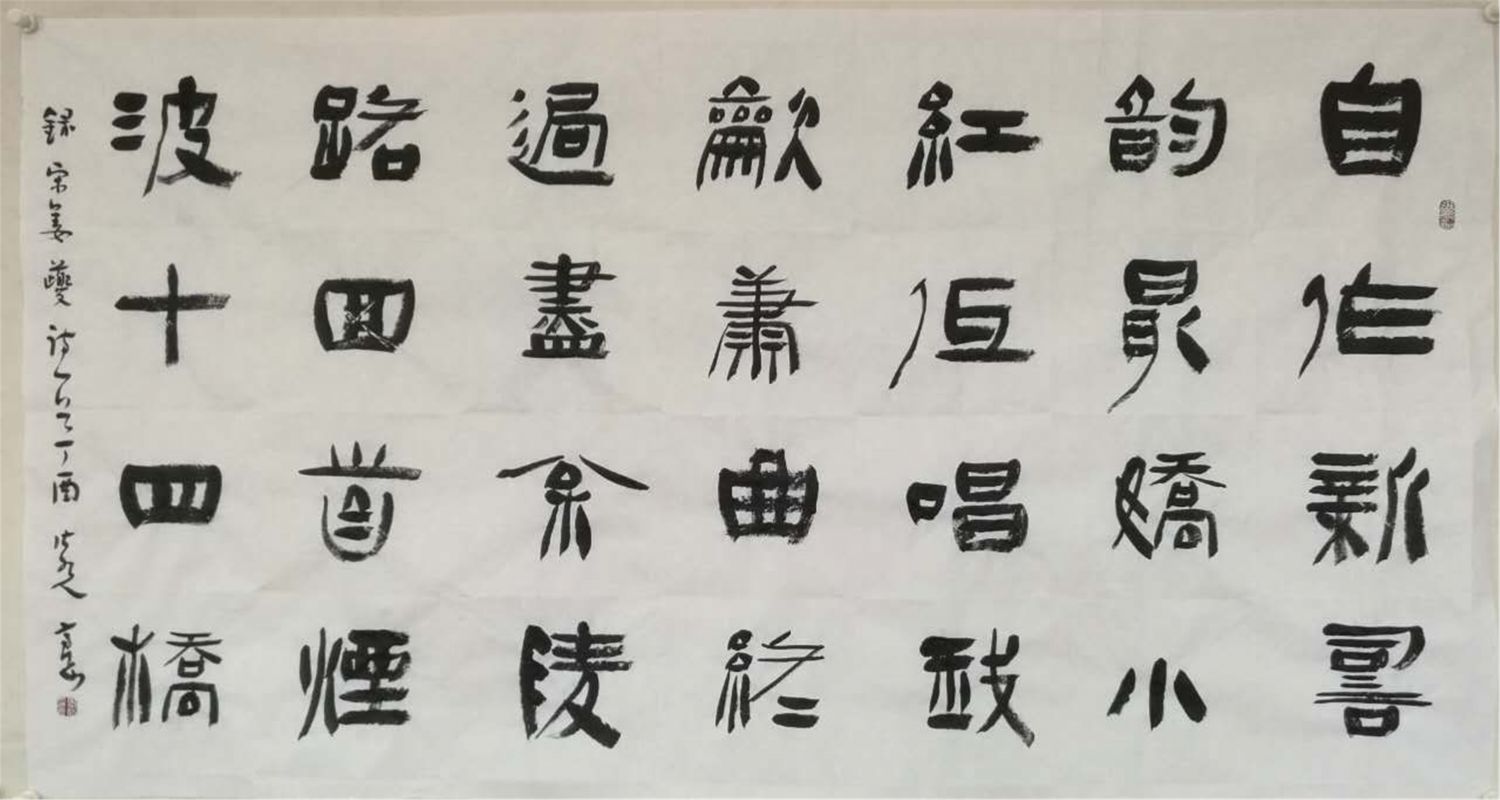 自作新䛐
韵最嬌小
紅低唱我
龡簫曲終
過盡松陵
路回首煙
波十四橋
録宋姜夔詩一首丁酉